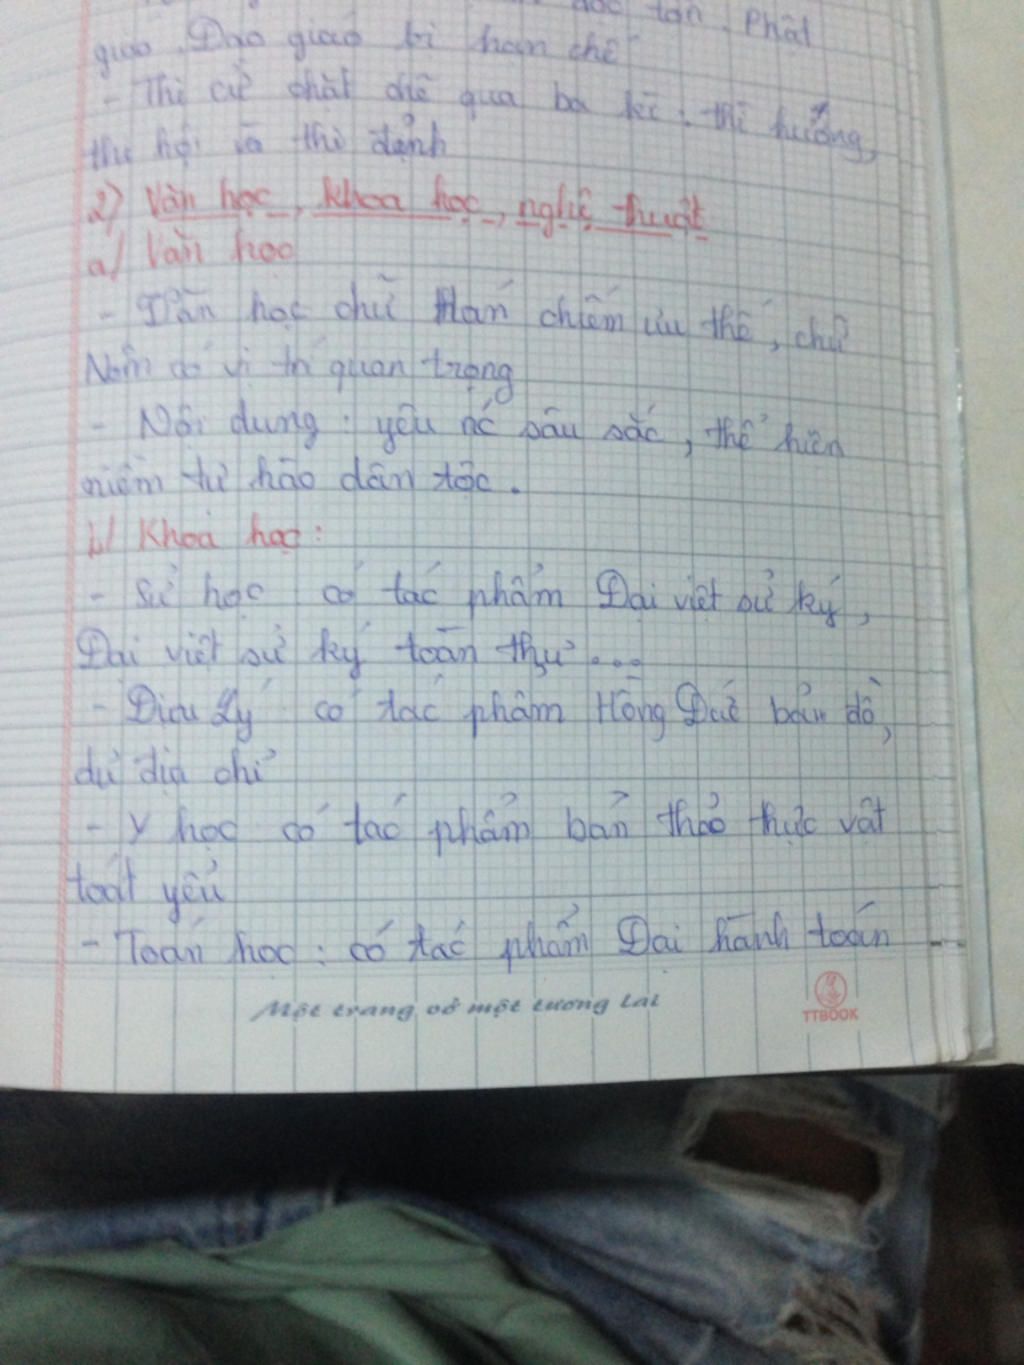 độc tôn. Phật
giáo. Đạo giáo bị hạn chế
- Thi cử chặt chẽ qua ba kì: thi hương,
thi hội và thi đình
2) Văn học, khoa học, nghệ thuật
a/ Văn học
- Văn học chữ Hán chiếm ưu thế, chữ
Nôm có vị trí quan trọng
- Nội dung: yêu nc sâu sắc, thể hiện
niềm tự hào dân tộc.
b/ Khoa học:
- Sử học có tác phẩm Đại việt sử ký,
Đại việt sử ký toàn thư...
- Địa Lý có tác phẩm Hồng Đức bản đồ,
dư địa chí
- Y học có tác phẩm bản thảo thực vật
toát yếu
- Toán học: có tác phẩm Đại hành toán
Một trang vở một tương lai
TTBOOK